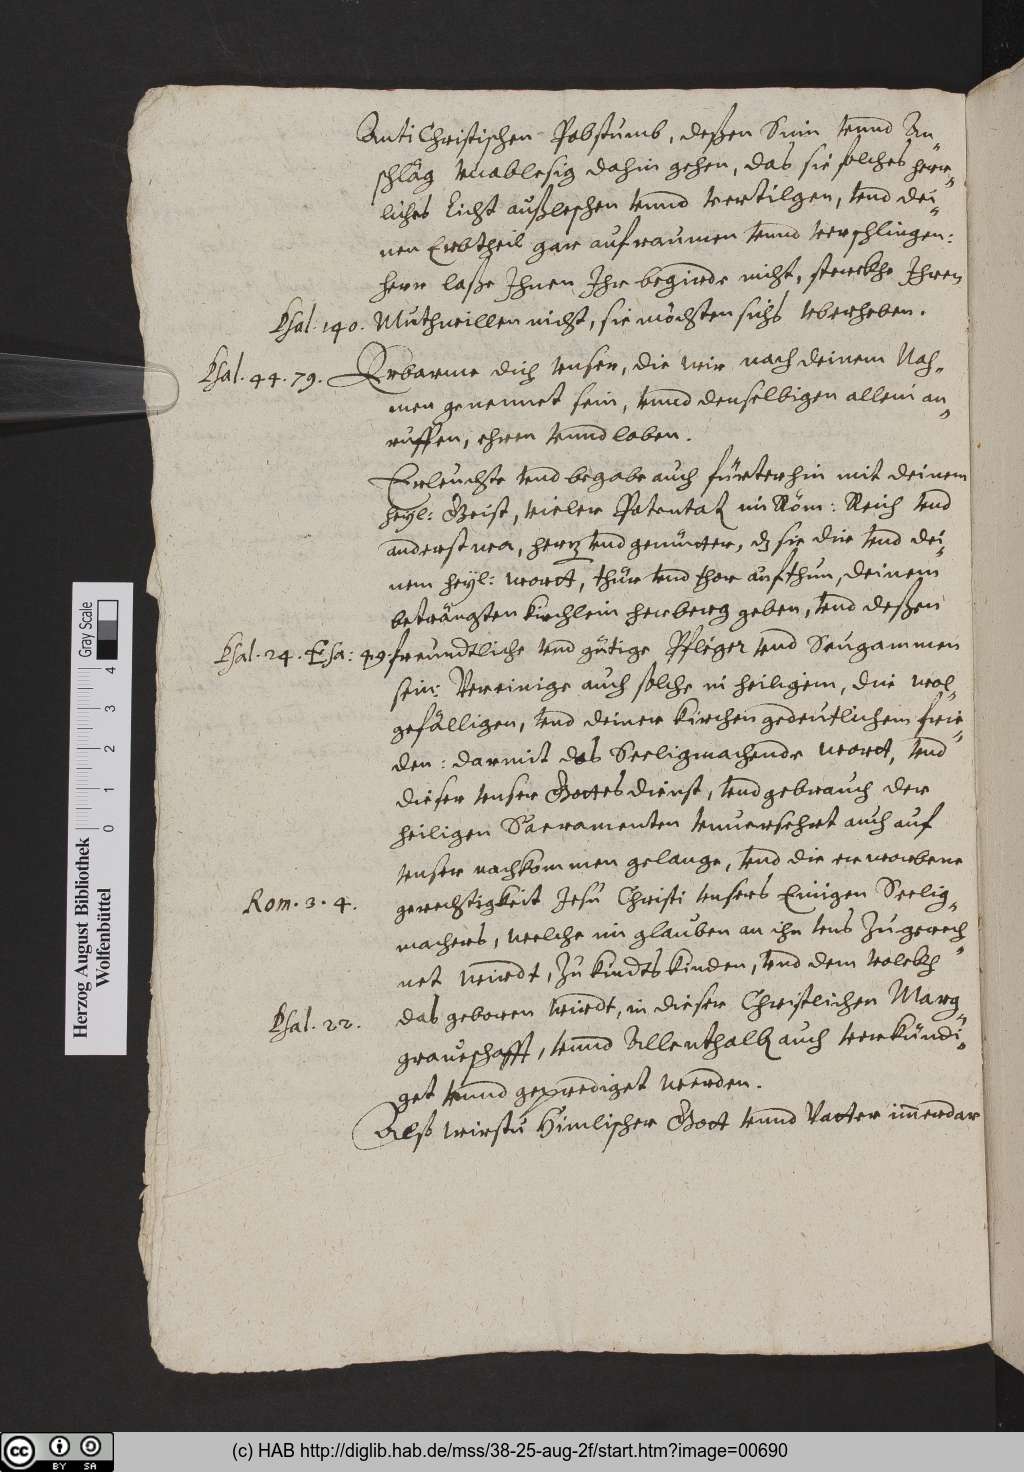 AntiChristischen Pabstumb, deßen Sinn vnnd An
schläg vnablesig dahin gehen, das sie solches herr„
liches Liecht außleschen vnnd vertilgen, vnd dei„
nen Erbtheil gar aufraumen vnnd verschlingen:
herr laße Ihnen Ihr begirde nicht, sterckhe Ihren
Psal. 140. Muthwillen nicht, sie möchten sichs vberheben.
Psal. 44. 79. Erbarme dich vnser, die wir nach deinem Nah„
men genennet sein, vnnd denselbigen allein an„
ruffen, ehren vnnd loben.
Erleuchte vnd begabe auch fürterhin mit deinem
heyl: Geist, vieler Potentat im Röm: Reich vnd
anderstwa, hertz vnd gemüeter, dz sie dir vnd dei„
nem heyl: wortt, thür vnd thor aufthun, deinem
beträngten kirchlein herberg geben, vnd deßen
Psal. 24. Esa: 49. freundtliche vnd gütige Pfleger vnd Seugammen
sein: Vereinige auch solche in heiligem, dir wol„
gefälligen, vnd deiner kirchen gedeutlichem frie„
den: darmit das Seeligmachende wortt, vnd
dieser vnser Gottes dienst, vnd gebrauch der
heiligen Sacramenten vnuersehrt auch auf
vnser nachkommen gelange, vnd die erworbene
Rom. 3. 4. gerechtigkeit Jesu Christi vnsers Einigen Seelig„
machers, welche im glauben an ihn vns Zugerech„
net wirdt, Zu kindts kinden, vnd dem volckh
Psal. 22. das geboren wirdt, in dieser Christlichen Marg„
graueschafft, vnnd Allenthalb auch verkündi„
get vnnd geprediget werden.
Alß wirstu Himlischer Gott vnnd Vatter im̄erdar
Herzog August Bibliothek
Wolfenbüttel
0 1 2 3 4
Gray Scale
cc BY SA
(c) HAB http://diglib.hab.de/mss/38-25-aug-2f/start.htm?image=00690